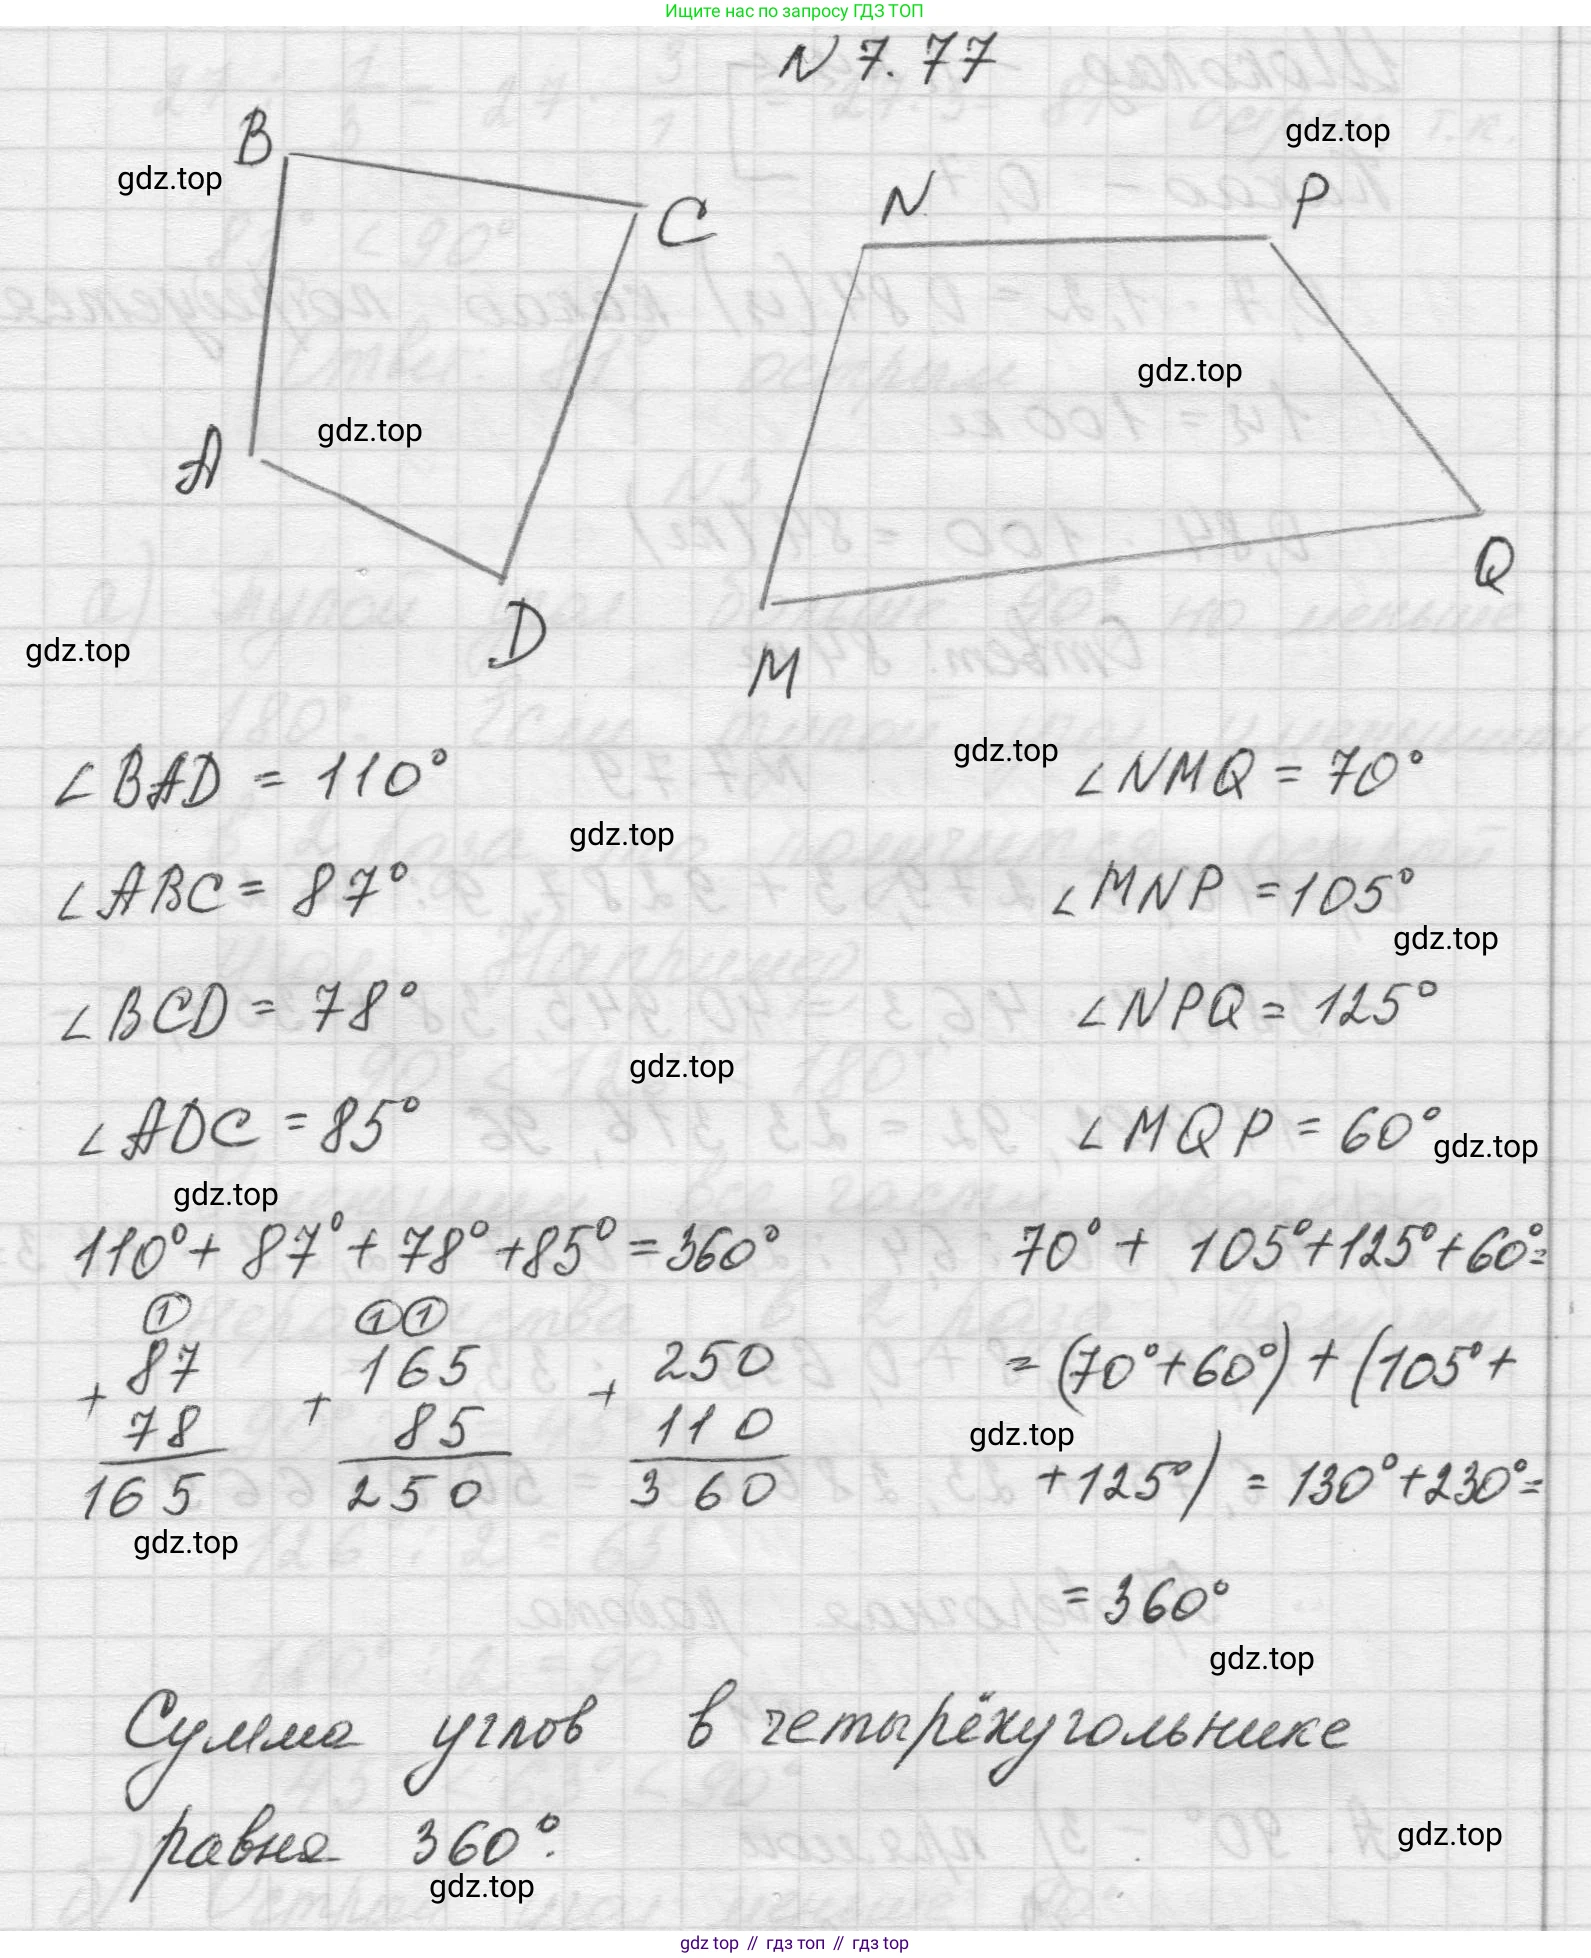 Ищите нас по запросу ГДЗ ТОП
N 7.77
gdz.top
B
gdz.top
N
P
C
gdz.top
gdz.top
A
Q
gdz.top
D
M
∠BAD = 110°
gdz.top
∠NMQ = 70°
gdz.top
∠ABC = 87°
∠MNP = 105°
gdz.top
∠BCD = 78°
∠NPQ = 125°
gdz.top
∠ADC = 85°
∠MQP = 60°
gdz.top
gdz.top
110° + 87° + 78° + 85° = 360°
70° + 105° + 125° + 60° =
1
1 1
87
165
250
= (70° + 60°) + (105° +
+
+
+
78
85
110
gdz.top
165
250
360
+ 125°) = 130° + 230° =
gdz.top
= 360°
gdz.top
Сумма углов в четырёхугольнике
равна 360°.
gdz.top
gdz.top
gdz top // гдз топ // гдз top